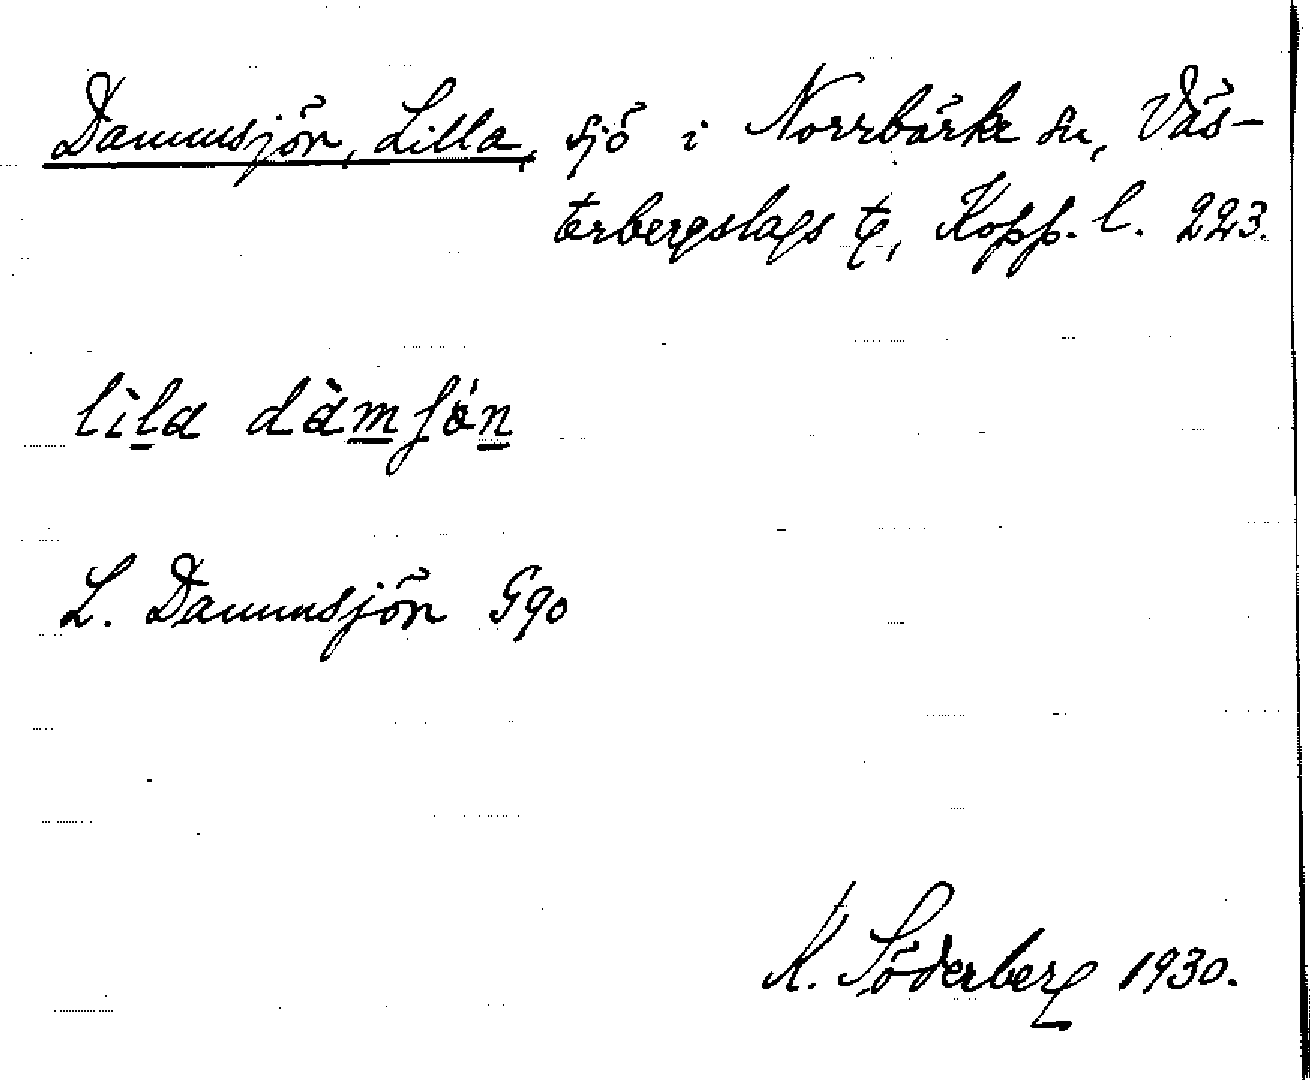 Dammsjön, Lilla, sjö i Norrbärke sn, Väs-
terbergslags tg, Kopp. l. 223.
lìla dàmʃǿn
L. Dammsjön G90
K. Söderberg 1930.